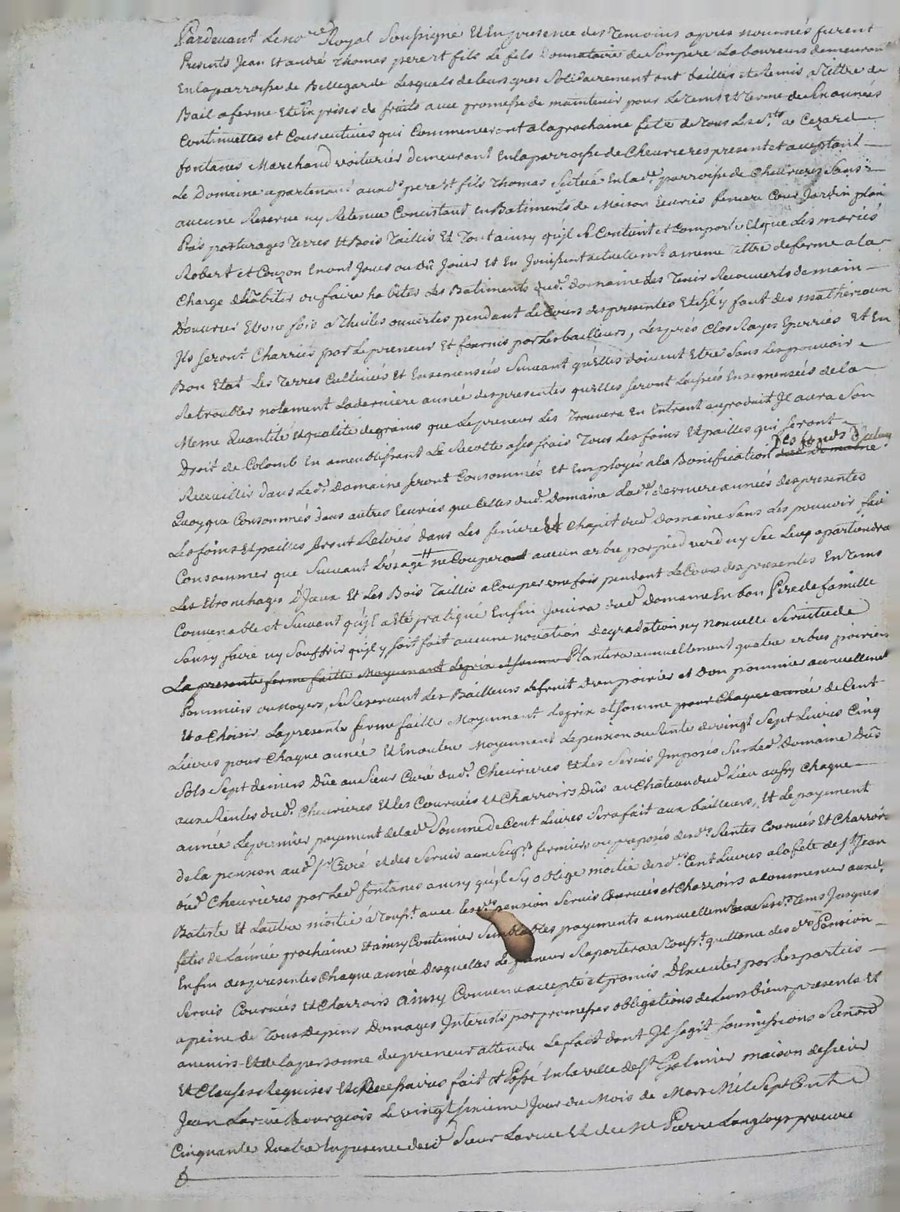 Pardevant Le No.re Royal Soussigné Et En presence des Temoins apres nommés furent
Presents Jean Et andré Thomas pere et fils Le fils Donnataire de Son pere Laboureurs demeurant
En la parroisse de Bellegarde Lesquels de leurs gres Solidairement ont baillés et Remis a tittre de
Bail a ferme Et En prises de fruits avec promesse de maintenir pour Le tems Et terme de années
Continuelles et Consecutives qui Commenceront a la prochaine fete de tous Les S.ts a Cezard
fontanes Marchand voiturier demeurant En la parroisse de Chevrieres present et acceptant
Le Domaine apartenant auxd.s pere et fils Thomas Scitué En lad.e parroisse de Chevrieres Sans
aucune Reserve ny Retenue Concistant En Batiments de Maison Ecuries feniere Cour Jardin
Prés pasturages Terres Et Bois Taillis Et Tout ainsy qu'il Se Contient et Comporte Et que Les mariés
Robert et Couzon En ont Jouis ou dû Jouir Et En Jouissent actuellem.t a meme tittre de ferme a la
Charge d'habiter ou faire habiter Les Batiments dud.t domaine des Tenir Recouverts de main
D'ouvrier Et une fois a Thuiles ouvertes pendant Le Cours des presentes Et S'il y faut des matheriaux
Ils Seront Charriés par Le preneur Et fournis par Les bailleurs, Les prés Clos Rayes Epurriés Et En
Bon Etat Les Terres Cultivées Et Ensemensées Suivant qu'Elles doivent Etre Sans Les pouvoir
detroubler notament La derniere année des presentes qu'elles Seront Laissées Ensemensées de la
Meme Quantité Et qualité de grains que Le preneur Les Trouvera En Entrant au produit Il aura Son
Droit de Colomb En ameublissant La Recolte a Ses frais Tous Les foins Et pailles qui Seront
Recueillis dans Led.t Domaine Seront Consommés Et Employés a la Bonification des fonds d'iceluy
Quoyque Consommés dans autres Ecuries que Celles dud.t Domaine La d.e derniere année des presentes
Les foins Et pailles Seront Retirés dans Les fenieres Et Chapit dud.t Domaine Sans Les pouvoir faire
Consommer que Suivant L'usage ne Coupera aucun arbre par pied verd ny Sec Luy apartiendra
Les Etronchages D'Iceux Et Les Bois Taillis a Couper une fois pendant Le Cours des presentes En tems
Convenable et Suivant qu'il a Eté pratiqué Enfin Jouira dud.t domaine En bon Pere de famille
Sans y faire ny Souffrir qu'il y Soit fait aucune novation Degradation ny nouvelle Servitude
La presente ferme faitte Moyennant Le prix et Somme Plantera annuellement quatre arbres poiriers
Pommiers ou Noyers, Se Reservent Les Bailleurs Le fruit d'un poirier et d'un pommier annuellement
Et a Choisir La presente ferme faitte Moyennant Le prix et Somme pour Chaque année de Cent
Livres pour Chaque année Et En outre Moyennant La pension ou Rente de vingt Sept Livres Cinq
Sols Sept deniers Dûe au Sieur Curé dud.t Chevrieres Et Les Servis Imposés Sur Led.t Domaine Dûs
aux Rentes dud.t Chevrieres Et les Courvées Et Charroirs Dûs au Château dud.t Lieu aussy Chaque
année Le premier payment de lad.e Somme de Cent Livres Sera fait aux bailleurs, Et Le payement
de la pension aud.t S.r Curé et des Servis aux fermiers ou preposés desd.s Rentes Courvées Et Charroirs
dud.t Chevrieres par Led.t fontanes ainsy qu'il S'y oblige moitié desd.s Cent Livres a la fete de S.t Jean
Batiste Et L'autre moitié a Touss.t avec Lesd.s pension Servis Courvées et Charroirs a Commencer auxd.s
fetes de L'année prochaine Et ainsy Continuer Semblables payments annuellem.t aux Susd.s tems Jusques
En fin des presentes Chaque année Desquelles Le preneur Raportera a Touss.t quittance desd.s Pension
Servis Courvées Et Charroirs ainsy Convenu accepté et promis D'Executer par Les parties
a peine de Tous Depens Domages Interets par promesses obligations de Leurs Biens presents Et
avenirs Et de La personne du preneur attendu Le fait dont Il S'agit Soumissions Renonc.ons
Et Clauses Requises Et Necessaires fait et Passé En la ville de S.t Galmier maison de Sieur
Jean Larue Bourgeois Le vingt Sixieme Jour du Mois de Mars Mil Sept Cent
Cinquante Quatre En presence dud.t Sieur Larue Et de M.e Pierre Langlois procureur